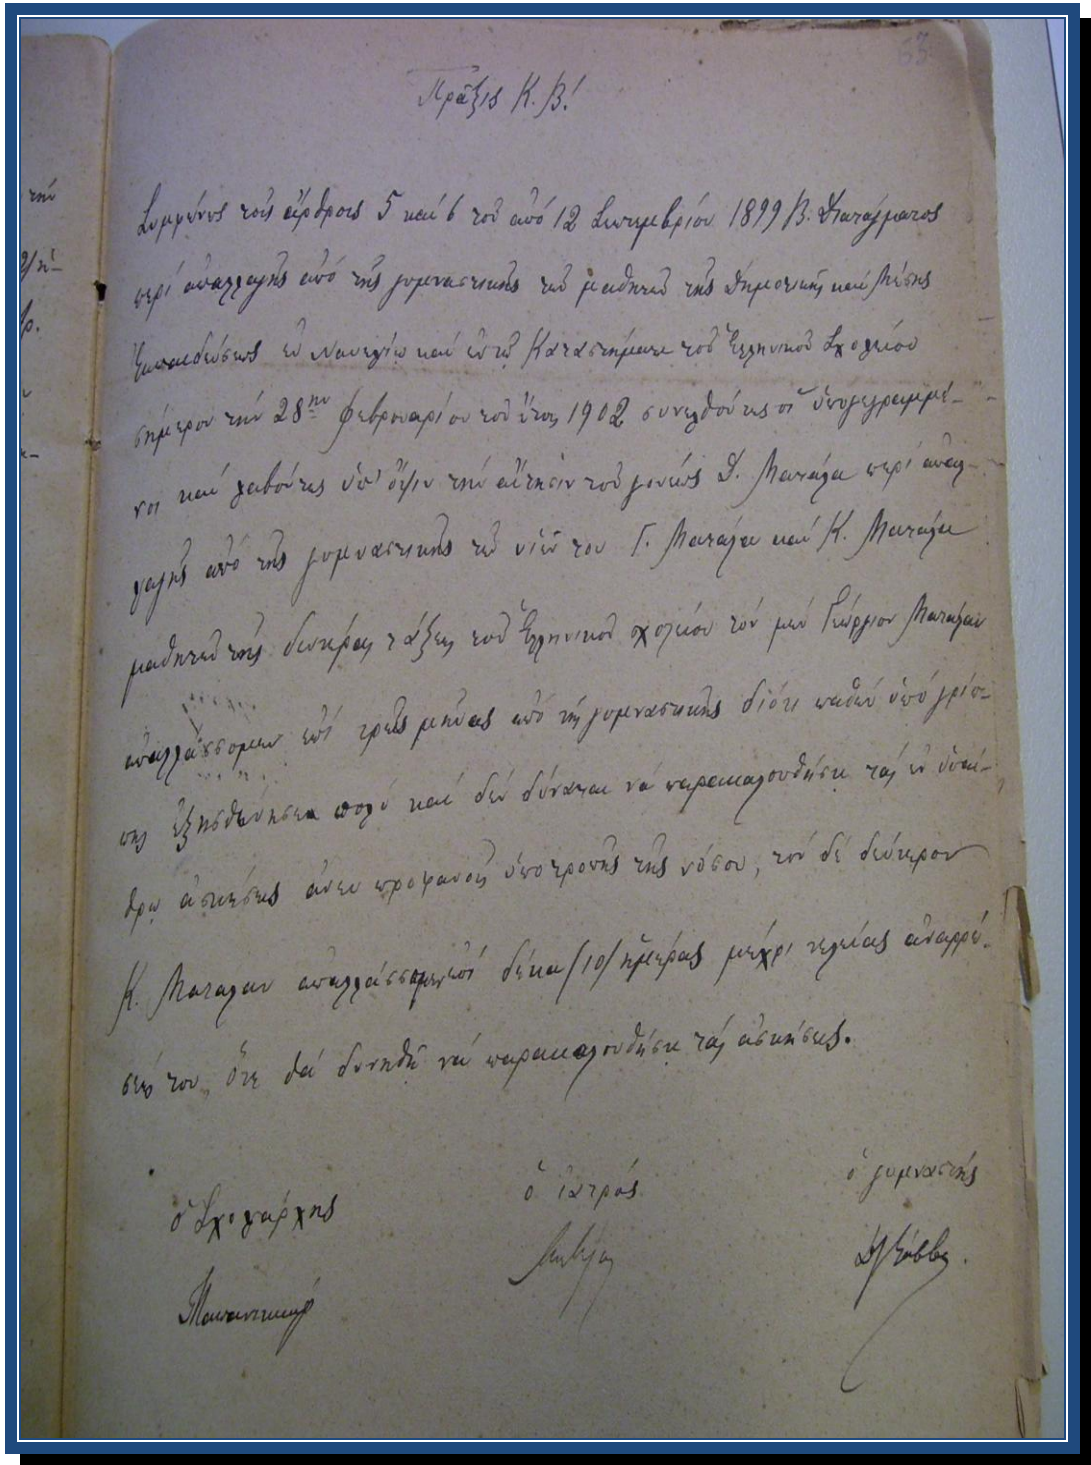 63
Πρᾶξις Κ. Β!
Συμφώνως τοῖς ἄρθροις 5 καί 6 τοῦ ἀπό 12 Σεπτεμβρίου 1899 Β. Διατάγματος
περί ἀπαλλαγῆς ἀπό τῆς γυμναστικῆς τῶν μαθητῶν τῆς Δημοτικῆς καί Μέσης
Ἐκπαιδεύσεως ἐν Ναυπλίῳ καί ἐν τῷ Καταστήματι τοῦ Ἑλληνικοῦ Σχολείου
σήμερον τήν 28ην Φεβρουαρίου τοῦ ἔτους 1902 συνελθόντες οἱ ὑπογεγραμμέ-
νοι καί λαβόντες ὑπ' ὄψιν τήν αἴτησιν τοῦ γονέως Δ. Ματάλα περί ἀπαλ-
λαγῆς ἀπό τῆς γυμναστικῆς τῶν υἱῶν του Γ. Ματάλα καί Κ. Ματάλα
μαθητῶν τῆς δευτέρας τάξεως τοῦ Ἑλληνικοῦ σχολείου τόν μέν Γεώργιον Ματάλαν
ἀπαλλάσσομεν ἐπί τρεῖς μῆνας ἀπό τῆς γυμναστικῆς διότι παθών ὑπό γρίπ-
πης ἐξησθένησεν πολύ καί δέν δύναται νά παρακολουθήσῃ τάς ἐν ὑπαί-
θρῳ ἀσκήσεις ἄνευ προφανοῦς ὑποτροπῆς τῆς νόσου, τόν δέ δεύτερον
Κ. Ματαλαν ἀπαλλάσσομεν ἐπί δέκα /10/ ἡμέρας μέχρι τελείας ἀναρρώ-
σεώς του, ὅτε θά δυνηθῇ νά παρακολουθήσῃ τάς ἀσκήσεις.
ὁ Σχολάρχης
ὁ ἰατρός
ὁ γυμναστής